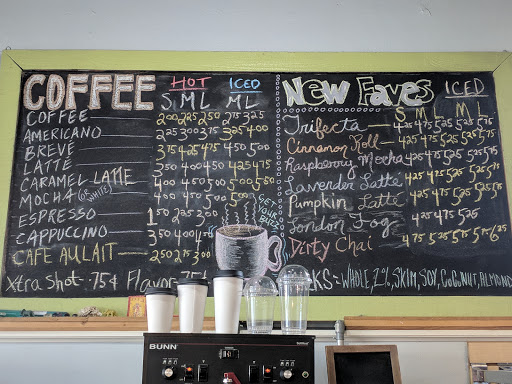 COFFEE HOT ICED
S M L M L
COFFEE 200 225 250 275 325
AMERICANO 225 300 375 325 400
BREVÉ 375 425 475 450 500
LATTE 350 400 450 425 475
CARAMEL LATTE 400 450 500
MOCHA (OR WHITE) 400 450 500
ESPRESSO 150 225 300
CAPPUCCINO 350 400
CAFE AULAIT 250 275 300
Xtra Shot .75¢ Flavor 75¢
GET YOUR BUZZ
New Faves ICED
S M L M L
Trifecta 425 475 525 525 575
Cinnamon Roll 425 475 525 525 575
Raspberry Mocha 425 475 525 525 575
Lavender Latte 425 475 525 525 575
Pumpkin Latte 425 475 525 525 575
London Fog 425 475 525
Dirty Chai 475 525 575 575 625
WHOLE, 2%, SKIM, SOY, COCONUT, ALMOND
BUNN